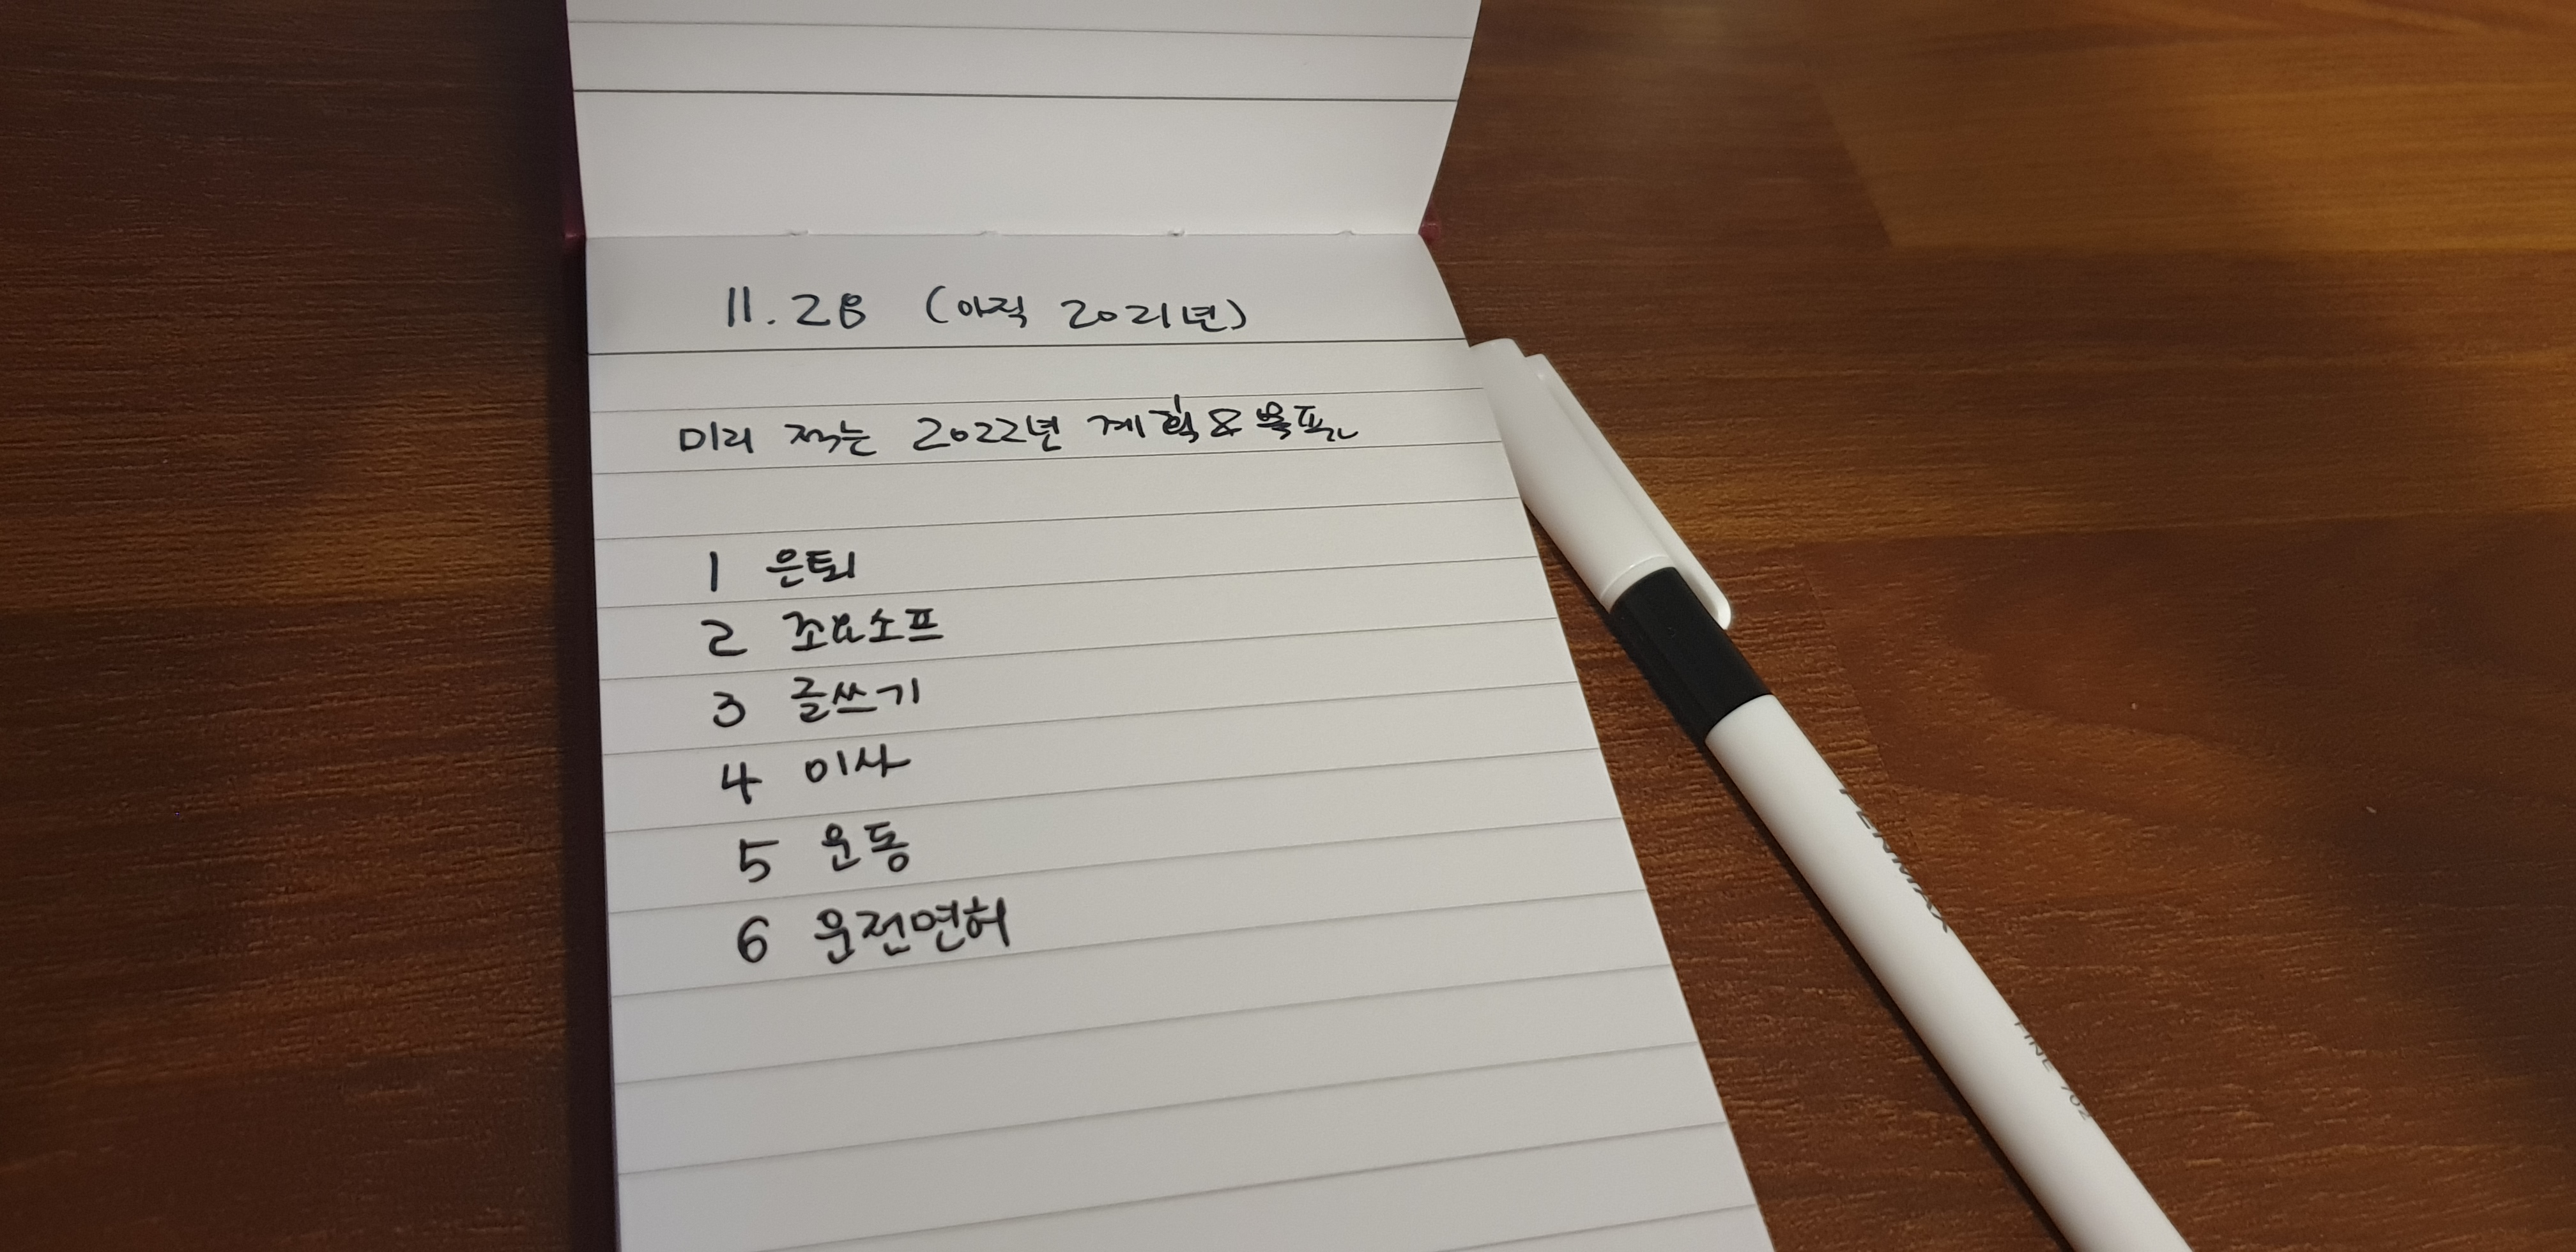 11.28 (아직 2021년)
미리 적는 2022년 계획 & 목표
1 은퇴
2 조요소프
3 글쓰기
4 이사
5 운동
6 운전면허
PENMAX
FINE 702